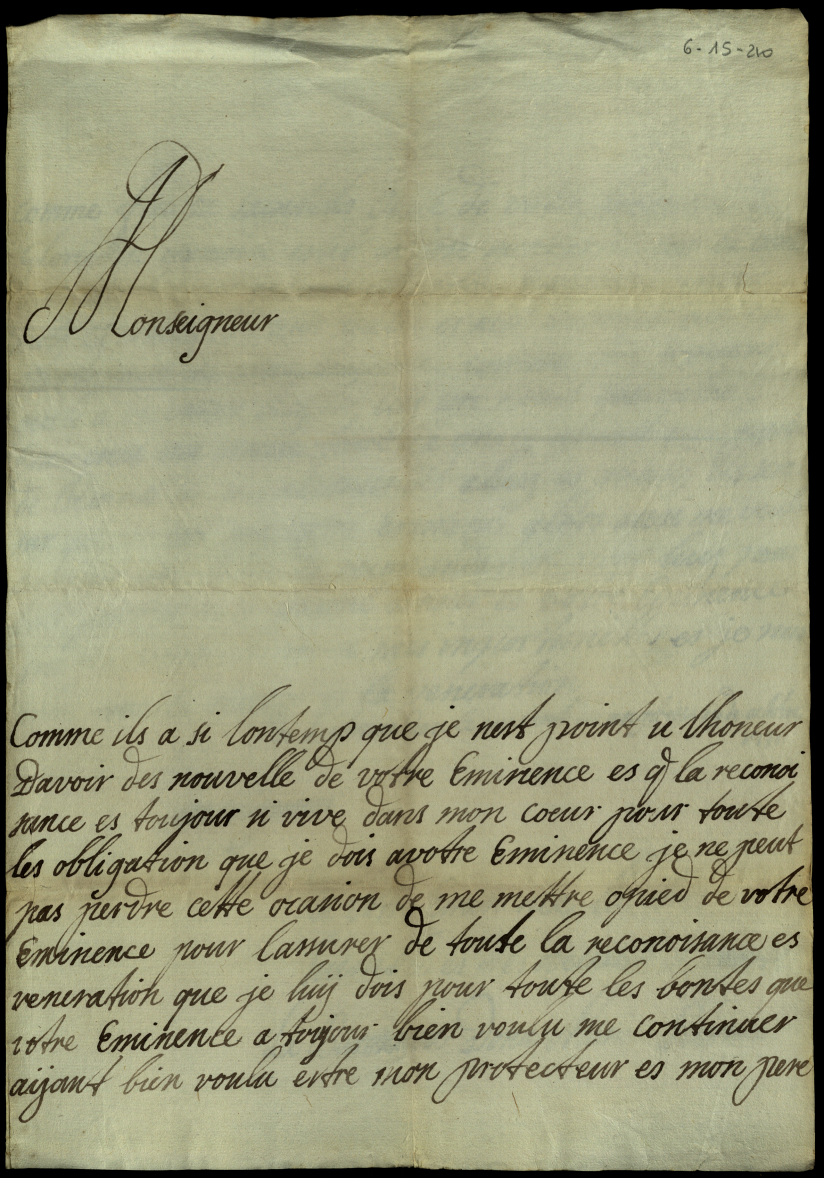 6-15-210
Monseigneur
Comme ils a si lontemp que je nest point u lhoneur
Davoir des nouvelle de votre Eminence es q la reconoi
sance es toujour si vive dans mon coeur pour toute
les obligation que je dois avotre Eminence je ne peut
pas perdre cette ocasion de me mettre opied de votre
Eminence pour lassurer de toute la reconoisance es
veneration que je luij dois pour toute les bontes que
votre Eminence a toujour bien voulu me continuer
aijant bien voulu estre mon protecteur es mon pere